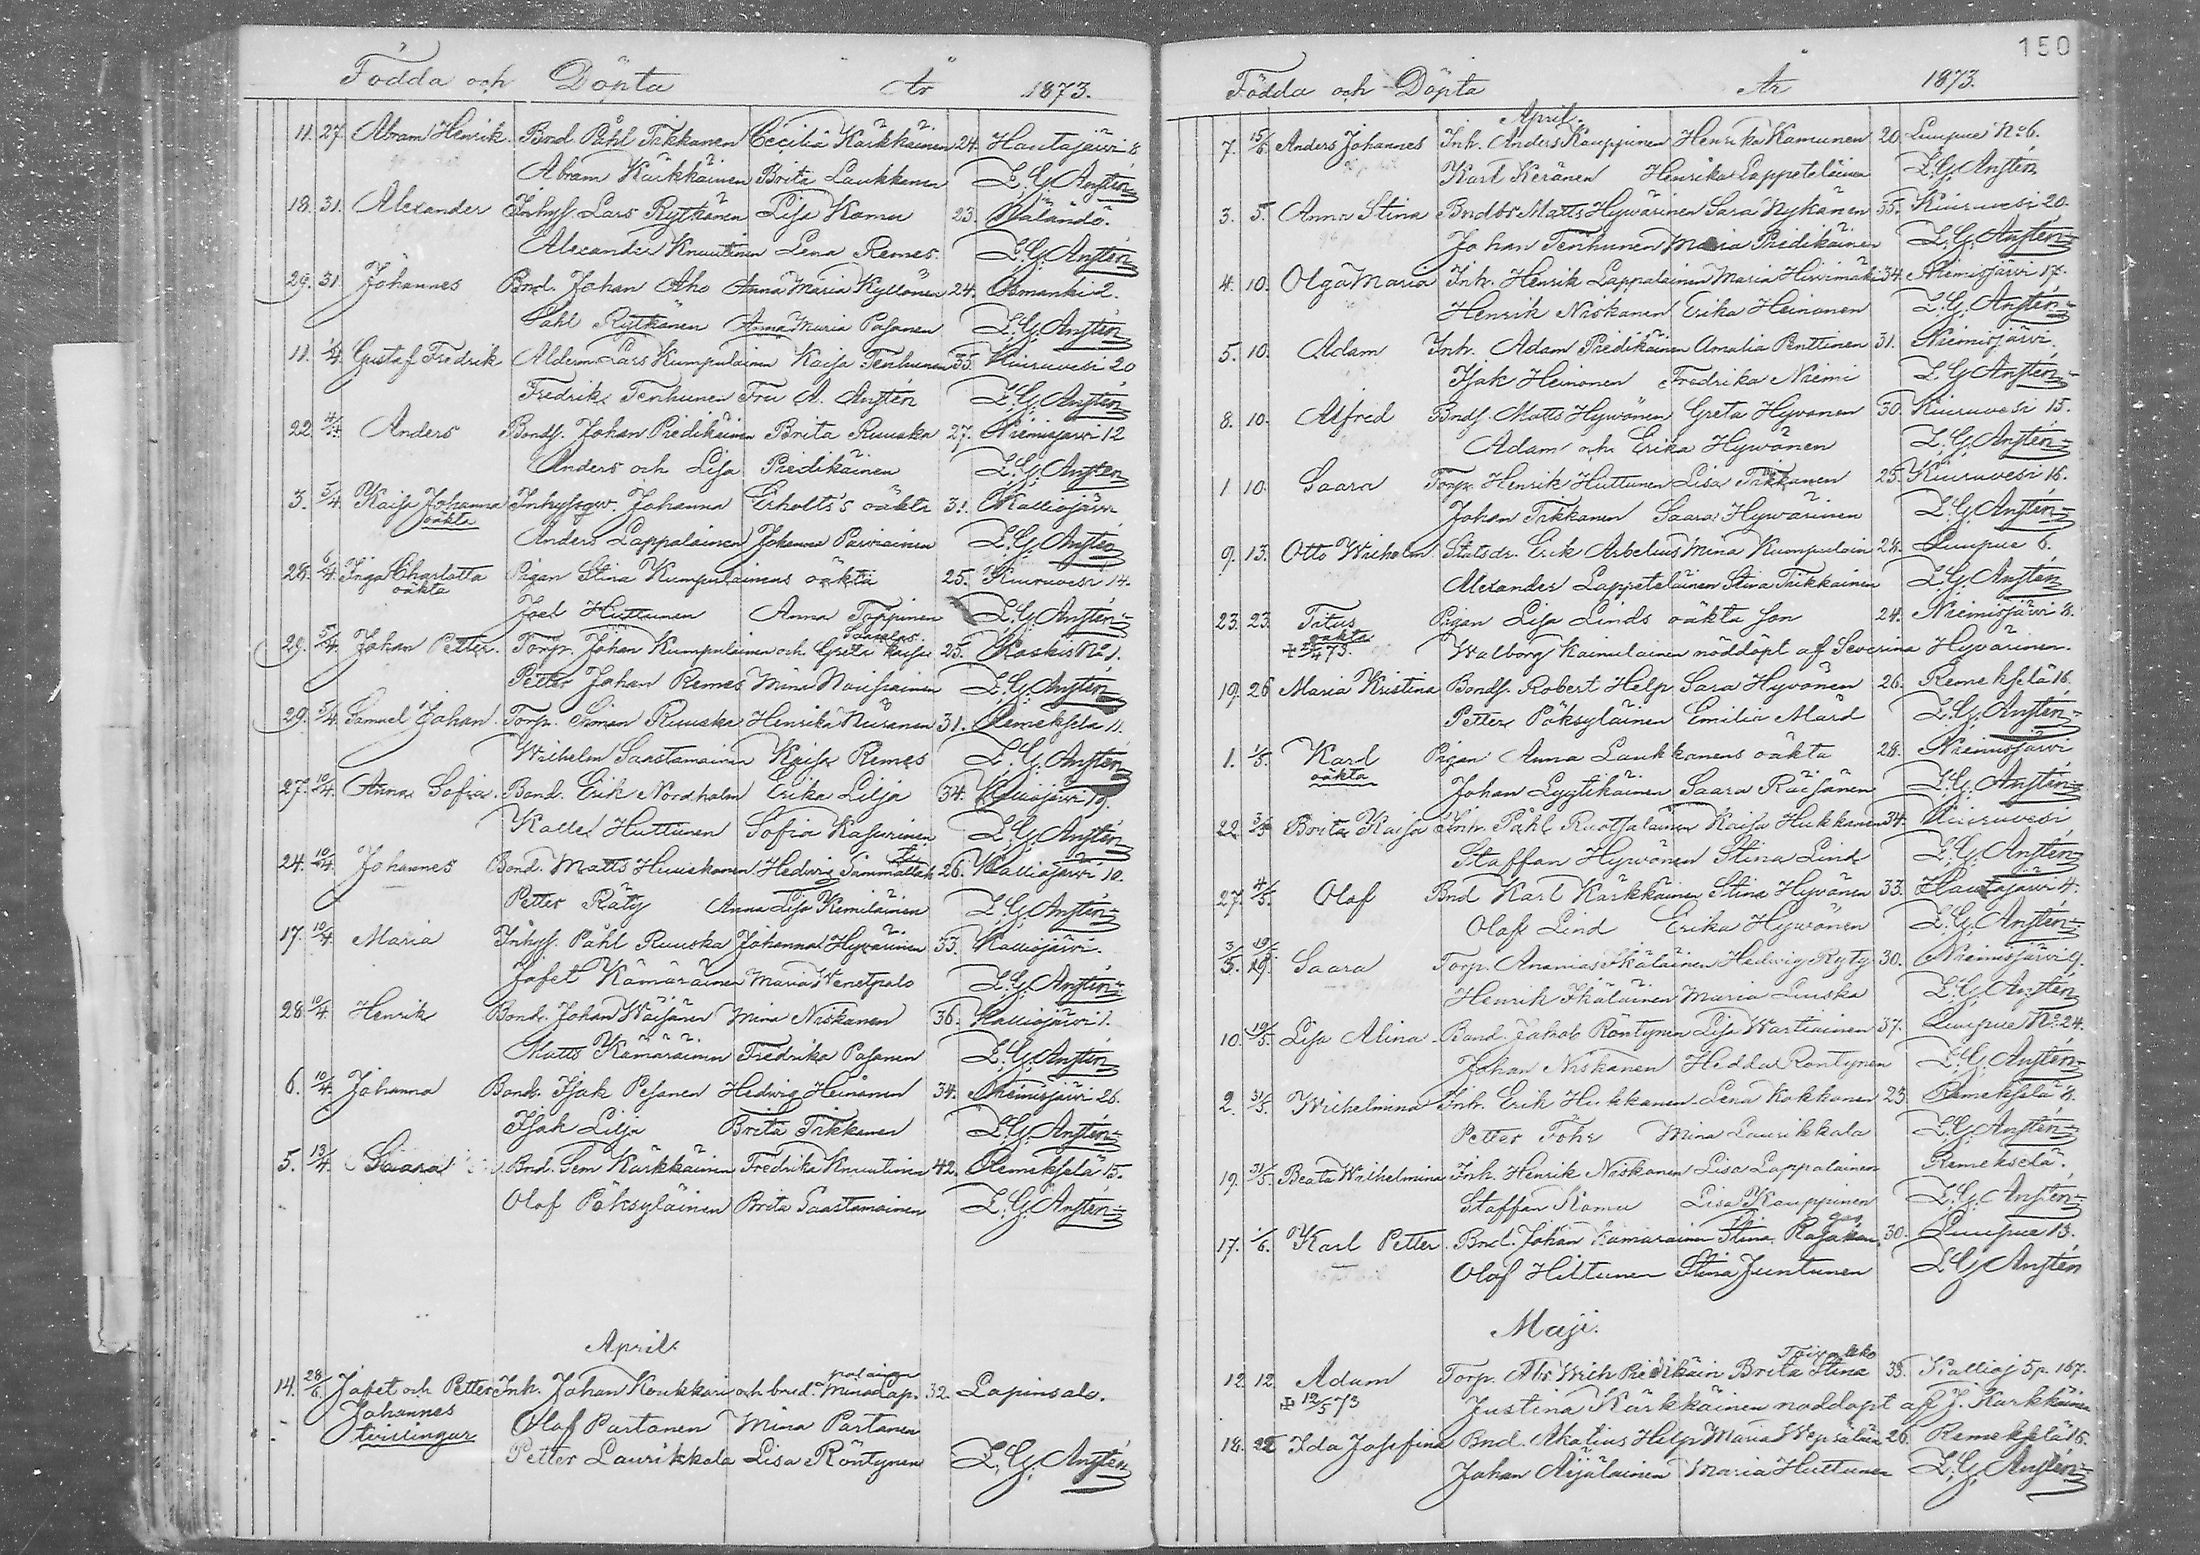 Födda och Döpta År 1873.
11. 27. Abram Henrik. Bnd. Påhl Tikkanen Cecilia Kärkkäinen 24. Hautajärvi 8
Abram Kärkkäinen Brita Laukkanen L. G. Anstén
18. 31. Alexander Inhys. Lars Rytkänen Lisa Kamu 23.
Alexander Knuutinen Lena Remes. L. G. Anstén
29. 31. Johannes Bnd. Johan Aho Anna Maria Kyllönen 24. Osmanki 2.
Påhl Rytkänen Anna Maria Pasanen L. G. Anstén
11. 1/4. Gustaf Fredrik Alderm. Lars Kumpulainen Kaisa Tenhunen 35. Kiuruvesi 20
Fredrik Tenhunen Fru A. Anstén L. G. Anstén
22. 4/4. Anders Bonds. Johan Piedikäinen Brita Ruuska 27. Niemisjärvi 12
Anders och Lisa Piedikäinen L. G. Anstén
3. 5/4. Kaisa Johanna Inhysqv. Johanna Erholts's oäkta 31. Kalliojärvi
oäkta Anders Lappalainen Johanna Parviainen L. G. Anstén
28. 6/4. Inga Charlotta Pigan Stina Kumpulainens oäkta 25. Kiuruvesi 14.
oäkta Joel Huttunen Anna Toppinen L. G. Anstén
29. 5/4. Johan Petter. Torp. Johan Kumpulainen och Greta Kaisa 25. Koskis No 1.
Petter Johan Remes Mina Nousiainen L. G. Anstén
29. 5/4. Samuel Johan. Torp. Simon Ruuska Henrika Niiranen 31. Remeksela 11.
Wilhelm Saastamoinen Kaisa Remes L. G. Anstén
27. 10/4. Anna Sofia. Bond. Erik Nordholm Erika Lilja 34. Kalliojärvi 19.
Kalle Huttunen Sofia Kasurinen L. G. Anstén
24. 10/4. Johannes Bond. Matts Huuskonen Hedwig Sammallah 26. Kalliojärvi 10.
Petter Räty Anna Lisa Kemiläinen L. G. Anstén
17. 10/4. Maria Inhys. Påhl Ruuska Johanna Hyvärinen 33. Kalliojärvi.
Jafet Kämäräinen Maria Wenetpalo L. G. Anstén
28. 10/4. Henrik Bond. Johan Wäisänen Mina Niskanen 36. Kalliojärvi 1.
Matts Kämäräinen Fredrika Pasanen L. G. Anstén
6. 10/4. Johanna Bond. Isak Pesonen Hedwig Heinonen 34. Niemisjärvi 26.
Isak Lilja Brita Tikkanen L. G. Anstén
5. 13/4. Saara Bnd. Sem Kärkkäinen Fredrika Knuutinen 42. Remekselä 15.
Olof Pöksyläinen Brita Saastamoinen L. G. Anstén
April.
14. 28/6. Jafet och Petter Inh. Johan Koukkari och brud. Mina Lap- 32. Lapinsalo.
palainen
Johannes Olof Partanen Mina Partanen
tvillingar Petter Laurikkala Lisa Röntynen L. G. Anstén
150
Födda och Döpta År 1873.
April.
7. 15/6 Anders Johannes Inh. Anders Kauppinen Henrika Kamunen 20. Luupue No 6.
Karl Keränen Henrika Lappeteläinen L. G. Anstén
3. 5. Anna Stina Bndbr Matts Hyvärinen Sara Nykänen 35. Kiuruvesi 20.
Johan Tenhunen Maria Piedikäinen L. G. Anstén
4. 10. Olga Maria Inh. Henrik Lappalainen Maria Hirvimäki 34. Niemisjärvi 17.
Henrik Niskanen Erika Heinonen L. G. Anstén
5. 10. Adam Inh. Adam Piedikäinen Amalia Penttinen 31. Niemisjärvi.
Isak Heinonen Fredrika Niemi L. G. Anstén
8. 10. Alfred Bnds. Matts Hyvönen Greta Hyvönen 30. Kiuruvesi 15.
Adam och Erika Hywönen L. G. Anstén
1 10. Saara Torp. Henrik Huttunen Lisa Tikkanen 25. Kiuruvesi 16.
Johan Tikkanen Saara Hywärinen L. G. Anstén
9. 13. Otto Wilhelm Statsdr. Erik Arbelius Mina Kumpulain 28. Luupue 6.
Alexander Lappeteläinen Stina Tikkainen L. G. Anstén
23. 23. Titus Pigan Lisa Linds oäkta son 24. Niemisjärvi 8.
oäkta Walborg Kainulainen nöddöpt af Severina Hyvärinen.
19. 26 Maria Kristina Bonds. Robert Help Sara Hyvönen 26. Remekselä 16.
Petter Pöksyläinen Emilia Mård L. G. Anstén
1. 1/5. Karl Pigan Anna Laukkanens oäkta 28. Niemisjärvi
oäkta Johan Lyytikäinen Saara Räisänen L. G. Anstén
22. Brita Kaisa Inh. Påhl Ruotsalainen Kaisa Hukkanen 34. Kiuruvesi
Staffan Hywönen Stina Lind L. G. Anstén
27. 4/5. Olof Bnd Karl Kärkkäinen Stina Hyvönen 33. Hautajärvi 4.
Olof Lind Erika Hywönen L. G. Anstén
Saara Torp. Ananias Ikäläinen Hedwig Ryty 30. Niemisjärvi 9.
Henrik Ikäläinen Maria Luuska L. G. Anstén
10. 19/5. Lisa Alina Bond. Jakob Röntynen Lisa Wartiainen 37. Luupue No 24.
Johan Niskanen Hedda Rontynen L. G. Anstén
2. 31/5. Wilhelmina Inh. Erik Hukkanen Lena Kokkonen 23. Remekselä 8.
Petter Föhr Mina Laurikkala L. G. Anstén
19. 31/5. Beata Wilhelmina Inh. Henrik Niskanen Lisa Lappalainen Remekselä.
Staffan Kamu Lisa Kauppinen L. G. Anstén
17. 1/6. Karl Petter. Bnd. Johan Kämäräinen Stina 30. Luupue 13.
Olof Hiltunen Stina Juntunen L G Anstén
Maji.
12. 12. Adam Torp. Abr. Wilh Piedikäin Brita Stina 33. Kallioj 5 p. 167.
+ 12/5 73 Justina Kärkkäinen noddopt af J. Karkkäinen
18. 22 Ida Josefina Bnd. Akatius Help Maria Wepsäläin 26. Remekselä 16.
Johan Äijälainen Maria Huttunen L. G. Anstén